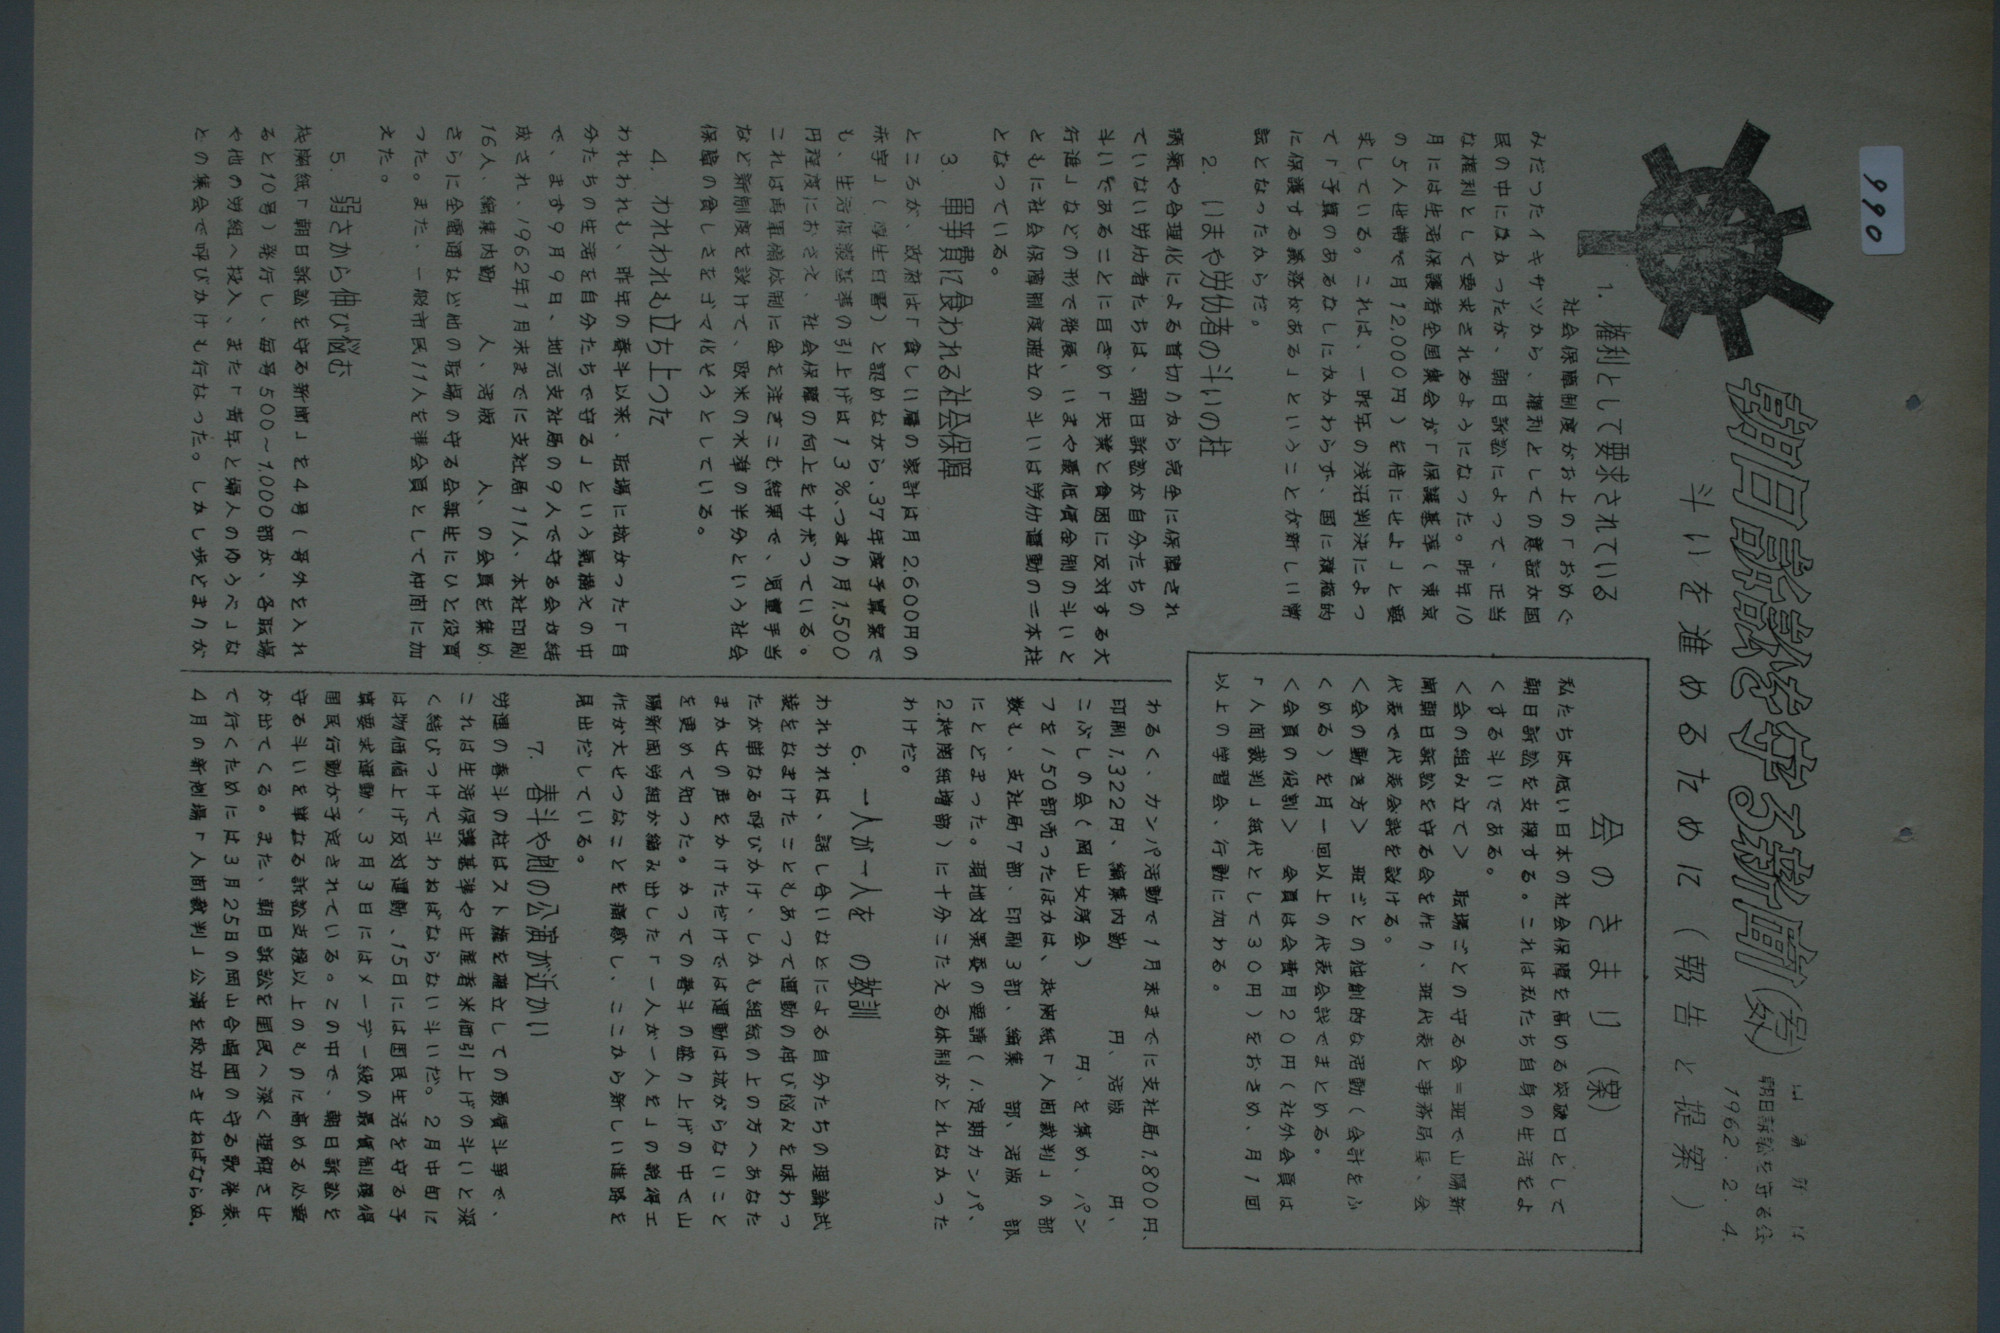 990
朝日訴訟を守る新聞(号外)
山陽新聞
朝日訴訟を守る会
1962.2.4.
斗いを進めるために(報告と提案)
1. 権利として要求されている
社会保障制度がお上の「おめぐ
みだったイキサツから、権利としての意識が国
民の中になかったが、朝日訴訟によって、正当
な権利として要求されるようになった。昨年10
月には生活保護者全国集会が「保護基準(東京
の5人世帯で月12,000円)を倍にせよ」と要
求している。これは、一昨年の浅沼判決によっ
て「予算のあるなしにかかわらず、国に積極的
に保護する義務がある」ということが新しい常
識となったからだ。
2. いまや労仂者の斗いの柱
病気や合理化による首切りから完全に保障され
ていない労仂者たちは、朝日訴訟が自分たちの
斗いであることに目ざめ「失業と貧困に反対する大
行進」などの形で発展、いまや最低賃金制の斗いと
ともに社会保障制度確立の斗いは労仂運動の二本柱
となっている。
3. 軍事費に食われる社会保障
ところが、政府は「貧しい層の家計は月2,600円の
赤字」(厚生白書)と認めながら、37年度予算案で
も、生活保護基準の引上げは13%、つまり月1,500
円程度におさえ、社会保障の向上をサボっている。
これは再軍備体制に金を注ぎこむ結果で、児童手当
など新制度を設けて、欧米の水準の半分という社会
保障の貧しさをゴマ化そうとしている。
4. われわれも立ち上った
われわれも、昨年の春斗以来、職場に拡がった「自
分たちの生活を自分たちで守る」という気構えの中
で、まず9月9日、地元支社局の9人で守る会が結
成され、1962年1月末までに支社局11人、本社印刷
16人、編集内勤 人、活版 人、の会員を集め、
さらに全電通など他の職場の守る会誕生にひと役買
った。また、一般市民11人を準会員として仲間に加
えた。
5. 弱さから伸び悩む
機関紙「朝日訴訟を守る新聞」を4号(号外を入れ
ると10号)発行し、毎号500～1,000部が、各職場
や他の労組へ投入、また「青年と婦人のゆうべ」な
どの集会で呼びかけも行なった。しかし歩どまりが
会のきまり(案)
私たちは低い日本の社会保障を高める突破口として
朝日訴訟を支援する。これは私たち自身の生活をよ
くする斗いである。
＜会の組み立て＞ 職場ごとの守る会＝班で山陽新
聞朝日訴訟を守る会を作り、班代表と事務局長、会
代表で代表会議を設ける。
＜会の動き方＞ 班ごとの独創的な活動(会計をふ
くめる)を月一回以上の代表会議でまとめる。
＜会員の役割＞ 会員は会費月20円(社外会員は
「人間裁判」紙代として30円)をおさめ、月1回
以上の学習会、行動に加わる。
わるく、カンパ活動で1月末までに支社局1,800円、
印刷1,322円、編集内勤 円、活版 円、
こぶしの会(岡山女所会) 円、を集め、パン
フを150部売ったほかは、機関紙「人間裁判」の部
数も、支社局7部、印刷3部、編集 部、活版 部
にとどまった。現地対策委の要請(1.定期カンパ、
2.機関紙増部)に十分こたえる体制がとれなかった
わけだ。
6. 一人が一人を の教訓
われわれは、話し合いなどによる自分たちの理論武
装をなまけたこともあって運動の伸び悩みを味わっ
たが単なる呼びかけ、しかも組織の上の方へあなた
まかせの声をかけただけでは運動は拡がらないこと
を更めて知った。かつての春斗の盛り上げの中で山
陽新聞労組が編み出した「一人が一人を」の説得工
作が大せつなことを痛感し、ここから新しい進路を
見出だしている。
7. 春斗や劇の公演が近かい
労運の春斗の柱はスト権を確立しての最賃斗争で、
これは生活保護基準や生産者米価引上げの斗いと深
く結びつけて斗わねばならない斗いだ。2月中旬に
は物価値上げ反対運動、15日には国民生活を守る予
算要求運動、3月3日にはメーデー級の最賃制獲得
国民行動が予定されている。この中で、朝日訴訟を
守る斗いを単なる訴訟支援以上のものに高める必要
が出てくる。また、朝日訴訟を国民へ深く理解させ
て行くためには3月25日の岡山合唱団の守る歌発表、
4月の新劇場「人間裁判」公演を成功させねばならぬ。